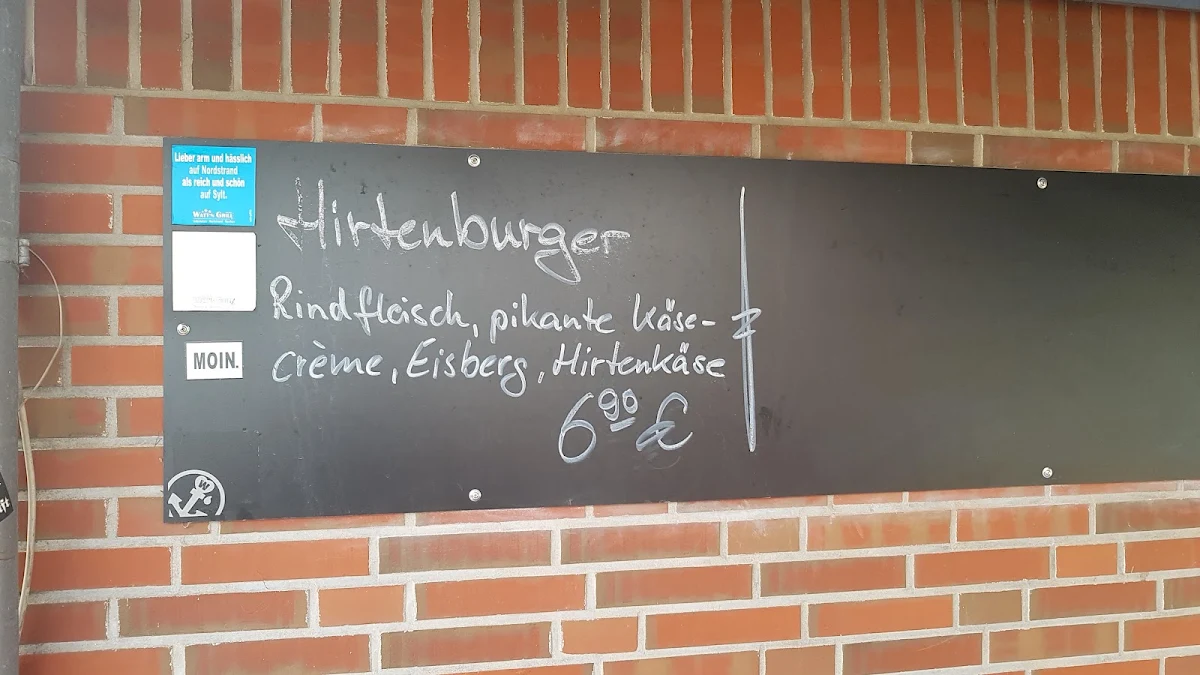 Lieber arm und hässlich
auf Nordstrand
als reich und schön
auf Sylt.
MOIN.
W
Hirtenburger
Rindfleisch, pikante Käse-
crème, Eisberg, Hirtenkäse
6,90 €